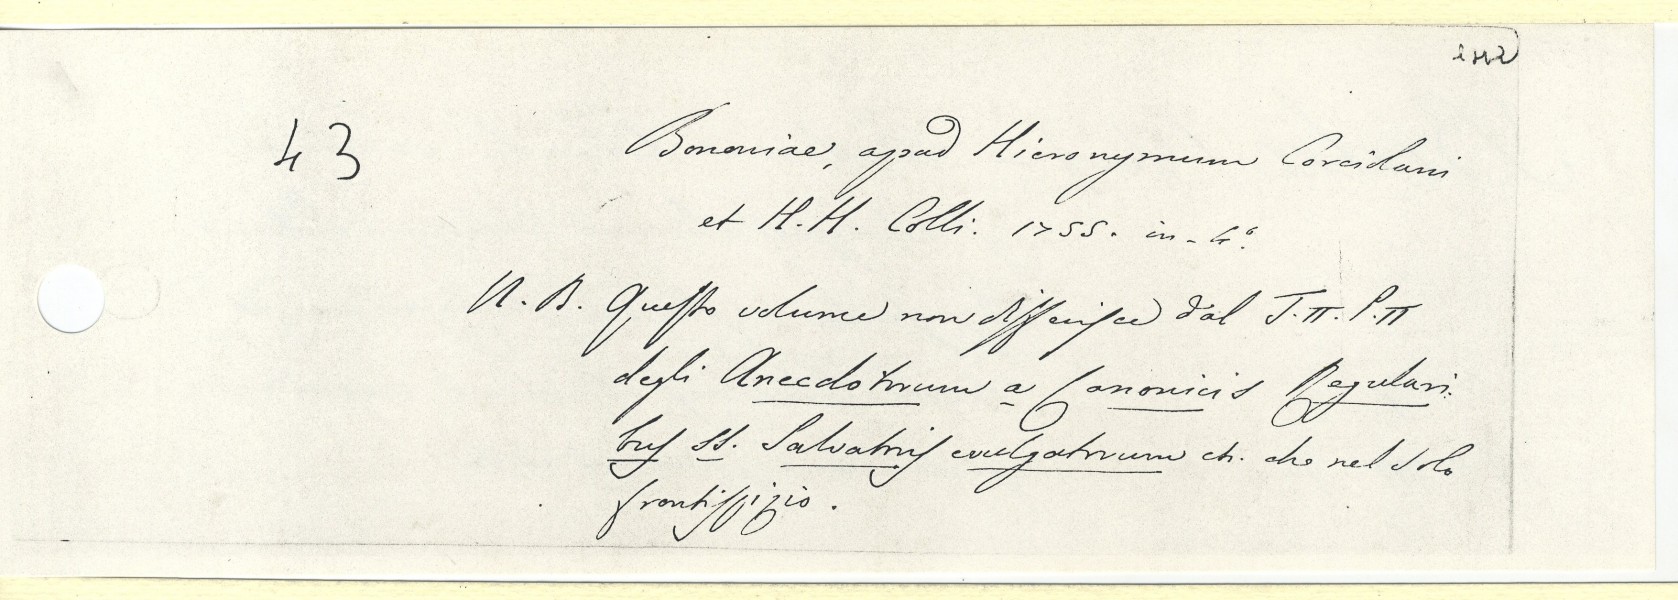 43
Bononiae, apud Hieronymum Corcidani
et H. H. Colli. 1755. in-4º.
N. B. Questo volume non differisce dal T. II. P. II
degli Anecdotorum a Canonicis Regulari-
bus SS. Salvatoris evulgatorum etc. che nel solo
frontispizio.